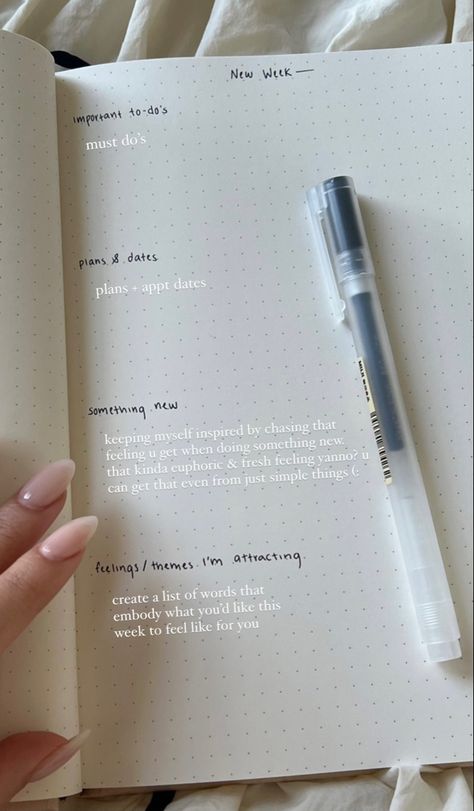 New Week —
important to-do's
must do's
plans & dates
plans + appt dates
something new
keeping myself inspired by chasing that
feeling u get when doing something new.
that kinda euphoric & fresh feeling yanno? u
can get that even from just simple things (:
feelings/themes I'm attracting
create a list of words that
embody what you'd like this
week to feel like for you